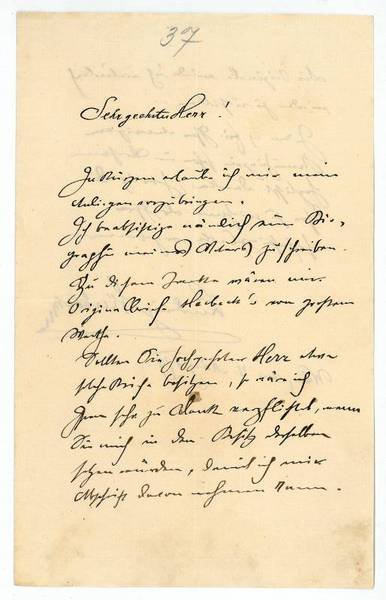 37
Sehr geehrter Herr!
In Kürzem erlaube ich mir mein
Anliegen vorzubringen.
Ich beabsichtige nämlich eine Bio-
graphie meines Vaters zu schreiben.
Zu diesem Zwecke wären mir
Originalbriefe Herbeck's von großem
Werthe.
Sollten Sie hochgeehrter Herr etwa
solche Briefe besitzen, so wäre ich
Ihnen sehr zu Dank verpflichtet, wenn
Sie mich in den Besitz derselben
setzen würden, damit ich mir
Abschrift davon nehmen kann.